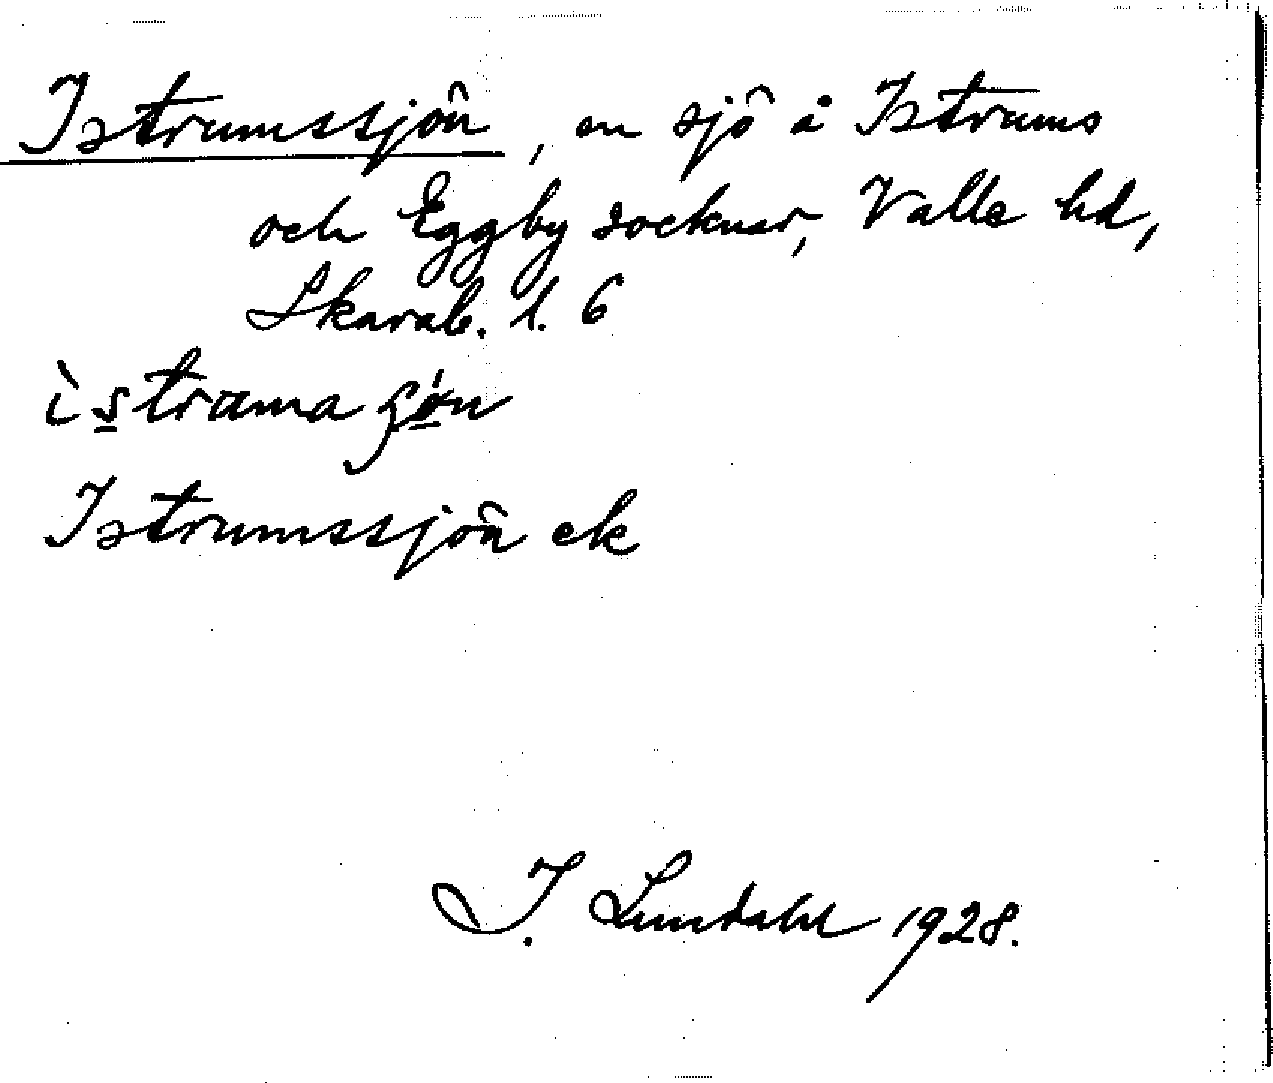 Istrumssjön, en sjö å Istrums
och Eggby socknar, Valle hd,
Skarab. l. 6
Istrumssjön ek
I. Lundahl 1928.